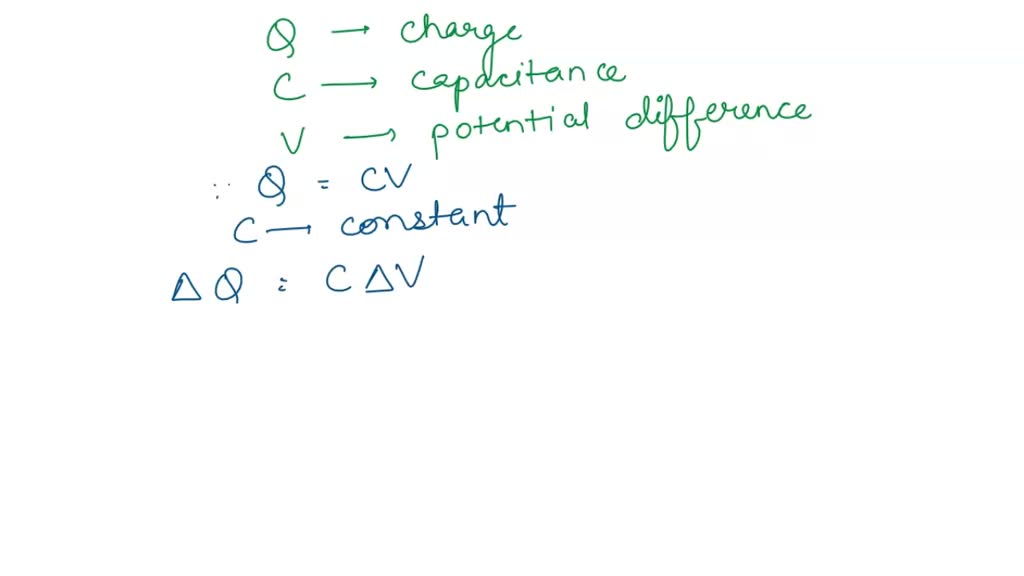 Q → charge
C → capacitance
V → potential difference
∵ Q = CV
C → constant
Δ Q = C ΔV